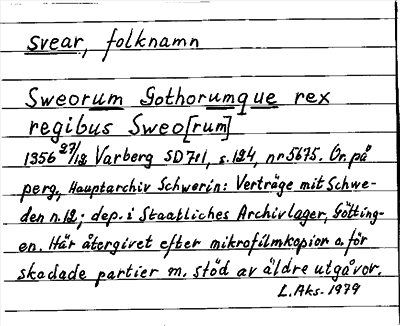 svear, folknamn
Sweorum Gothorumque rex
regibus Sweo[rum]
1356 27/12 Varberg SD 7:1, s. 124, nr 5675. Or. på
perg, Hauptarchiv Schwerin: Verträge mit Schwe-
den n. 12; dep. i Staatliches Archivlager, Götting-
en. Här återgivet efter mikrofilmkopior a. för
skadade partier m. stöd av äldre utgåvor.
L. Aks- 1979